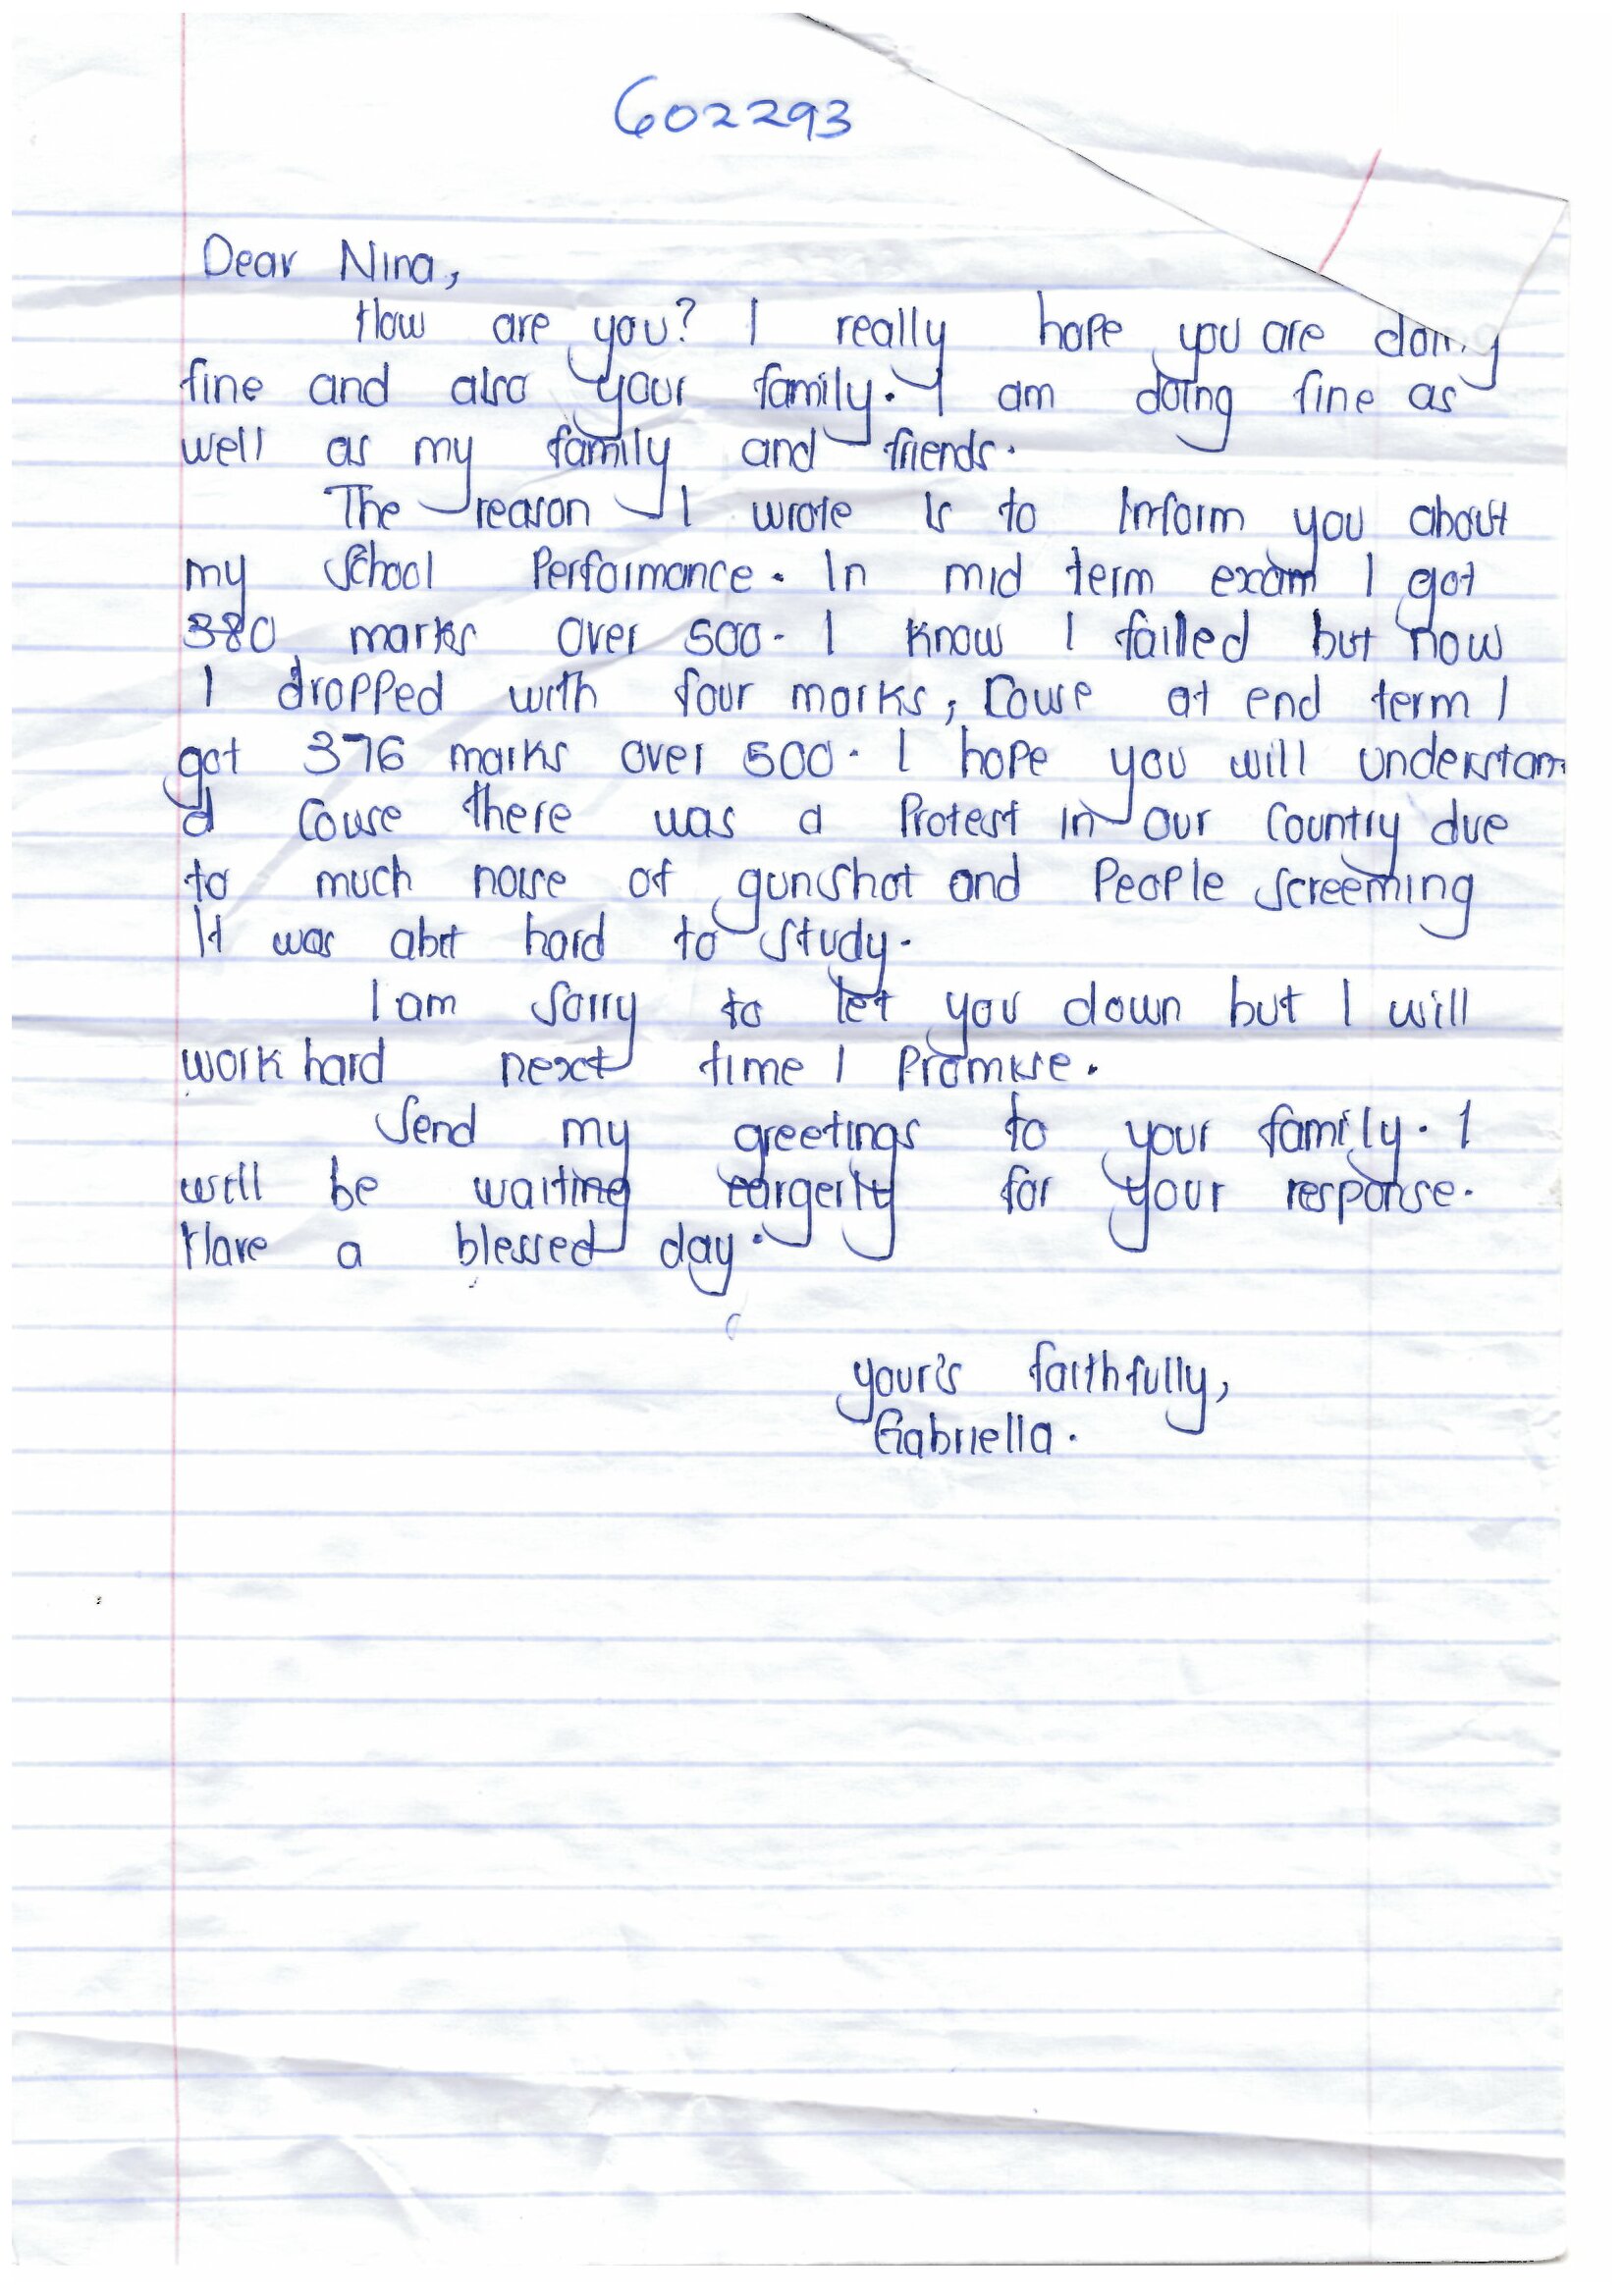 602293
Dear Nina,
How are you? I really hope you are doing
fine and also your family. I am doing fine as
well as my family and friends.
The reason I wrote is to inform you about
my school performance. In mid term exam I got
380 marks over 500. I know I failed but now
I dropped with four marks, couse at end term I
got 376 marks over 500. I hope you will understan
d couse there was a protest in our country due
to much noise of gunshot and people screeming
It was abit hard to study.
I am sorry to let you down but I will
work hard next time I promise.
Send my greetings to your family. I
will be waiting eargerly for your response.
Have a blessed day.
your's faithfully,
Gabriella.